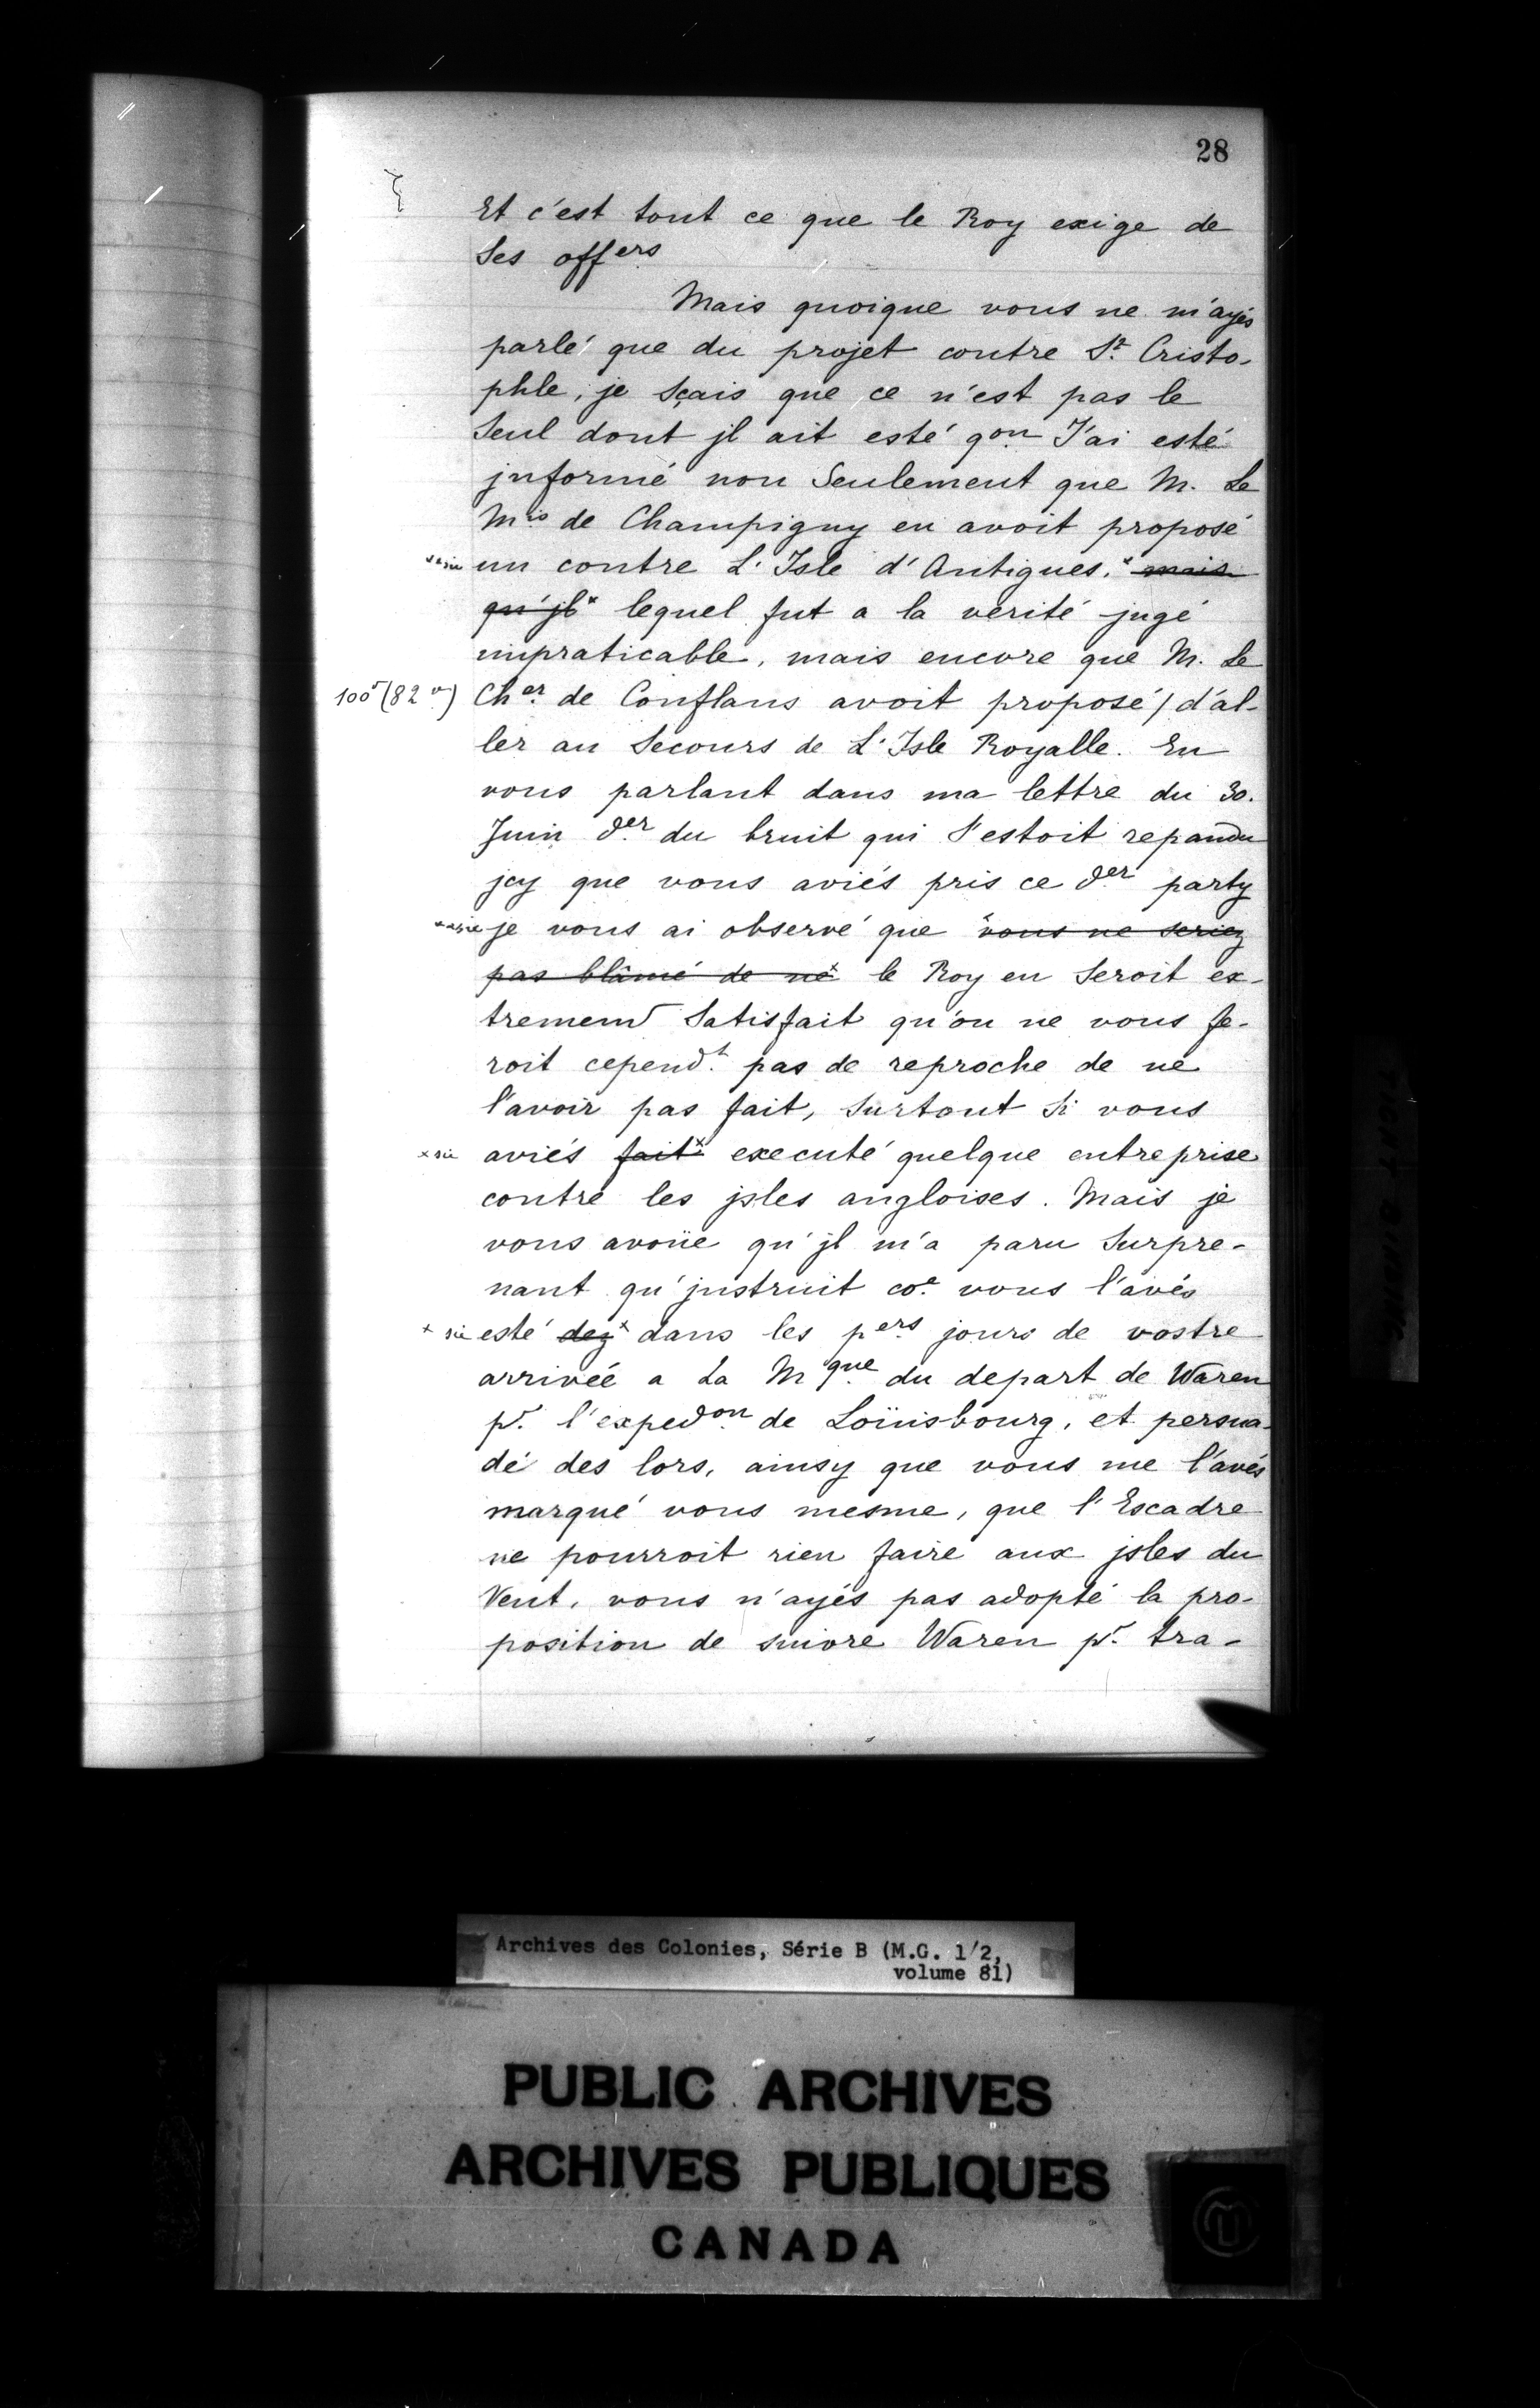 28
Et c'est tout ce que le Roy exige de
Ses offers
Mais quoique vous ne m'ayés
parlé que du projet contre St. Cristo-
phle, je sçais que ce n'est pas le
Seul dont jl ait esté qon. J'ai esté
jnformé non Seulement que M. Le
Mis de Champigny en avoit proposé
x sic un contre L'Isle d'Antigues, x mais
qu'jl x lequel fut a la verité jugé
impraticable, mais encore que M. Le
100r (82 v) Cher. de Conflans avoit proposé / d'al-
ler au Secours de L'Isle Royalle. En
vous parlant dans ma lettre du 30.
Juin der. du bruit qui S'estoit repandu
jcy que vous aviés pris ce der. party
x sic je vous ai observé que x vous ne seriez
pas blâmé de ne x le Roy en Seroit ex-
tremem̄t Satisfait qu'on ne vous fe-
roit cependt. pas de reproche de ne
l'avoir pas fait, Surtout Si vous
x sic aviés fait x executé quelque entreprise
contre les jsles angloises. Mais je
vous avoüe qu'jl m'a paru Surpre-
nant qu'jnstruit coe. vous l'avés
x sic esté dez x dans les pers. jours de vostre
arrivée a La Mque. du depart de Waren
pr. l'expedon. de Loüisbourg, et persua-
dé des lors, ainsy que vous me l'avés
marqué vous mesme, que l'Escadre
ne pourroit rien faire aux jsles du
Vent, vous n'ayés pas adopté la pro-
position de suivre Waren pr. tra-
Archives des Colonies, Série B (M.G. 1/2,
volume 81)
PUBLIC ARCHIVES
ARCHIVES PUBLIQUES
CANADA